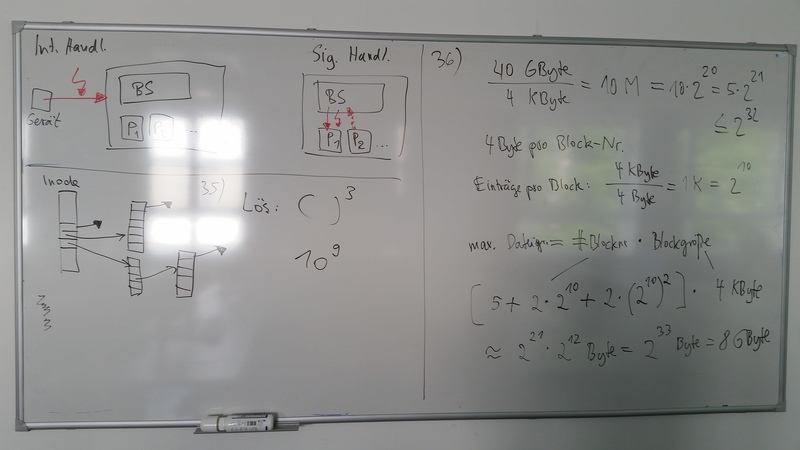 Int. Handl.
BS
Gerät
P1 P2
Sig. Handl.
BS
P1 P2 ...
Inode
35)
Lös: ( )³
10⁹
36)
40 GByte / 4 KByte = 10 M = 10·2²⁰ = 5·2²¹
≤ 2³²
4 Byte pro Block-Nr.
Einträge pro Block: 4 KByte / 4 Byte = 1 K = 2¹⁰
max. Dateigr. = #Blocknr · Blockgröße
[5 + 2·2¹⁰ + 2·(2¹⁰)²] · 4 KByte
≈ 2²¹ · 2¹² Byte = 2³³ Byte = 8 GByte